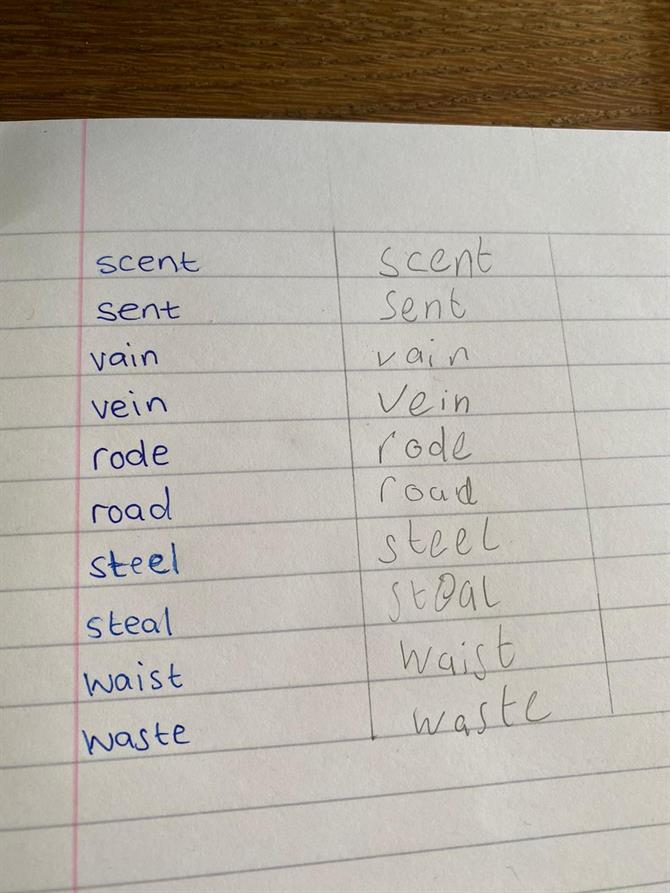 scent scent
sent sent
vain vain
vein vein
rode rode
road road
steel steel
steal steal
waist waist
waste waste